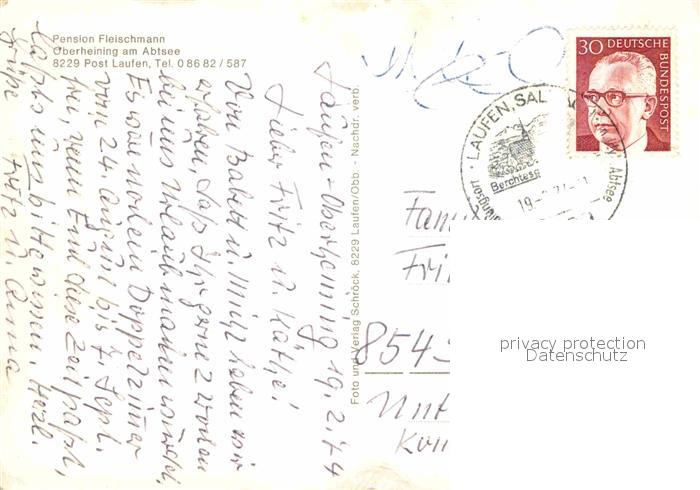 Pension Fleischmann
Oberheining am Abtsee
8229 Post Laufen, Tel. 0 86 82 / 587
Laufen-Oberheining 19.2.74
Lieber Fritz u. Käthe!
Von Babett u. Michl haben wir
erfahren, daß Ihr gerne 2 Wochen
bei uns Urlaub machen würdet,
Es wär noch ein Doppelzimmer
vom 24. August bis 7. Sept.
frei, wenn Euch diese Zeit paßt,
laßts uns bitte wissen. Herzl.
Grüße Fritz u. Anna
Foto und Verlag Schröck, 8229 Laufen/Obb. - Nachdr. verb.
30 DEUTSCHE
BUNDESPOST
LAUFEN, SAL
Abtsee
Berchtesg
Fam
Fri
854
Unt
privacy protection
Datenschutz